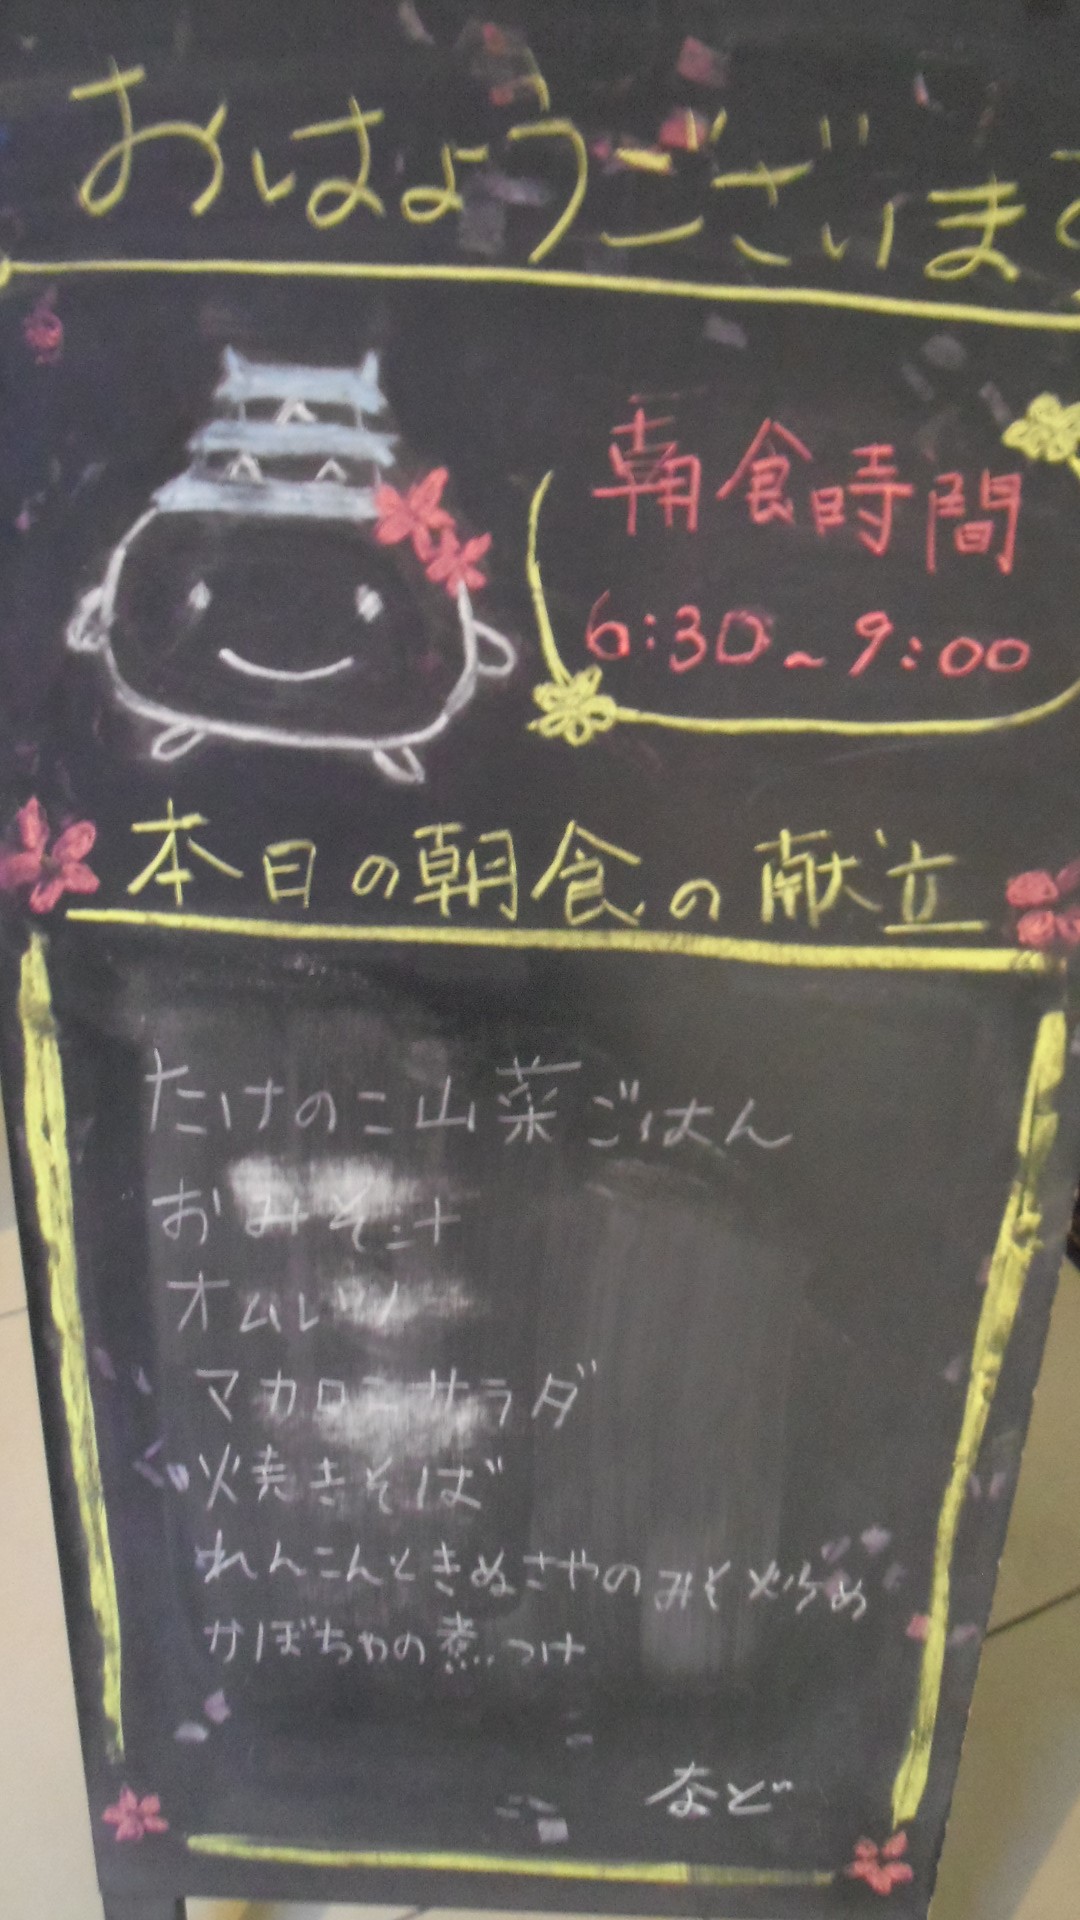 おはようございます
朝食時間
6:30~9:00
本日の朝食の献立
たけのこ山菜ごはん
おみそ汁
オムレツ
マカロニサラダ
焼きそば
れんこんときぬさやのみそ炒め
かぼちゃの煮つけ
など